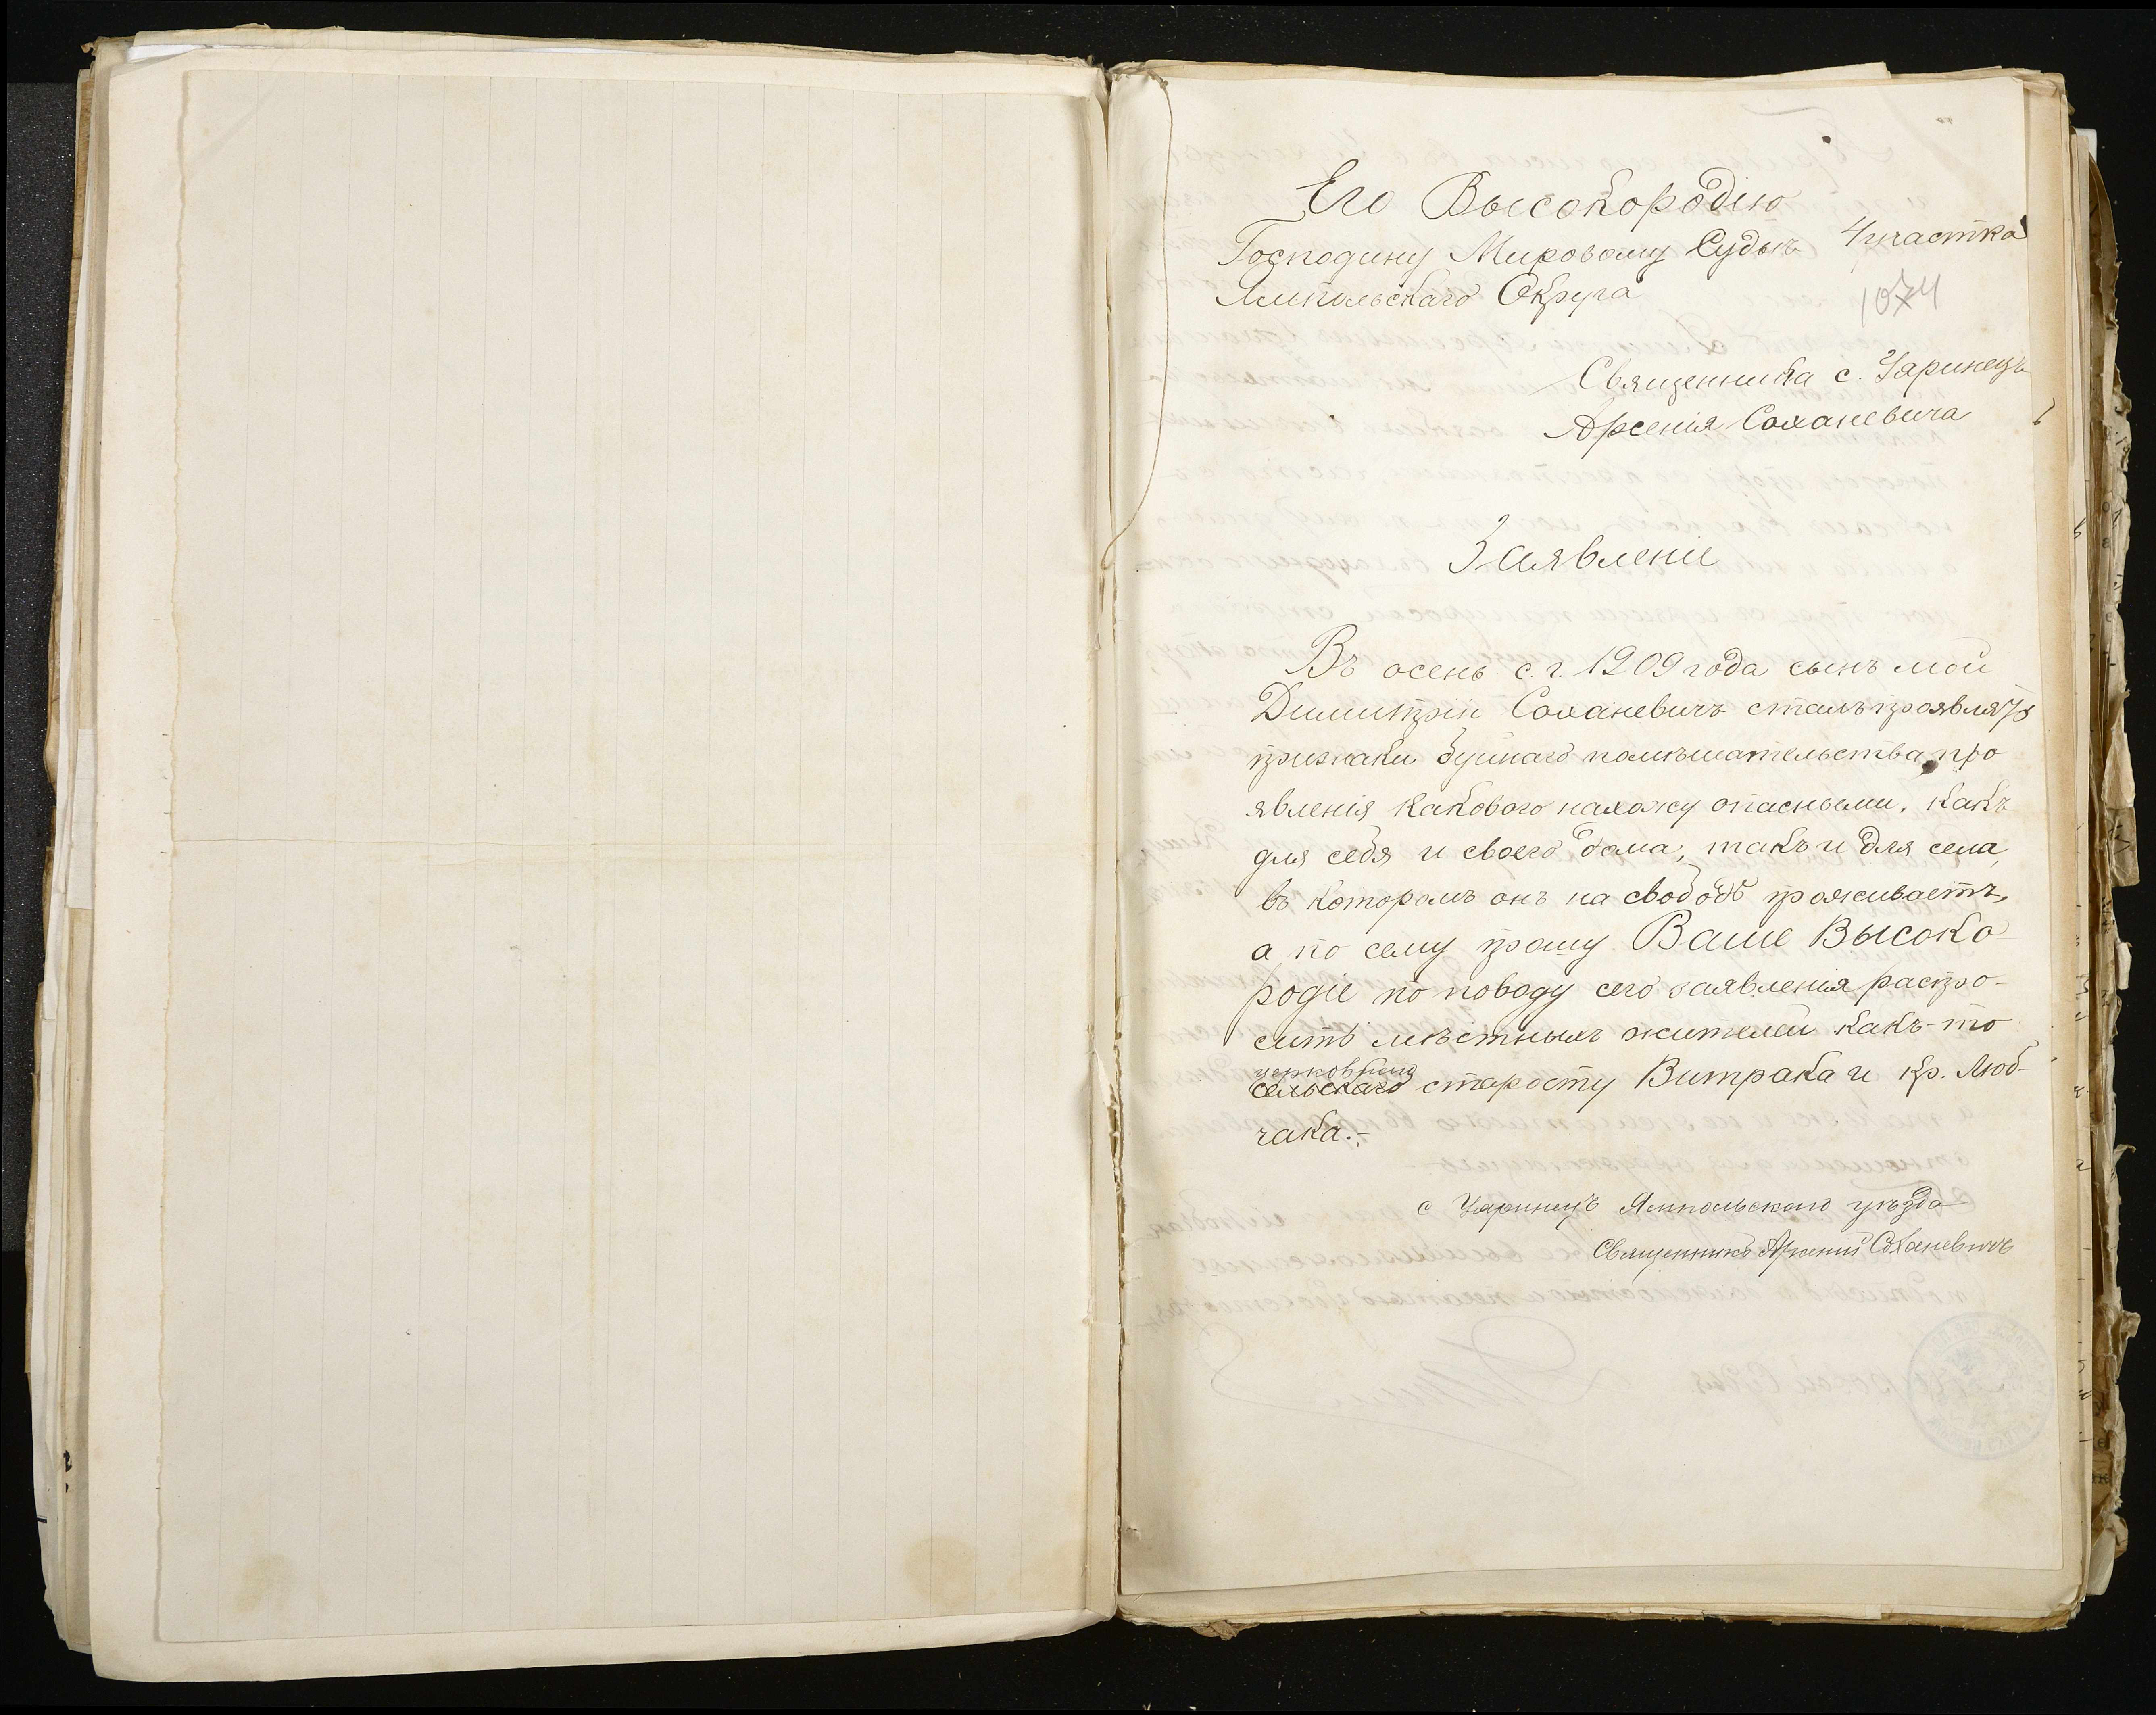 Его Высокородію
Господину Мировому Судьѣ 4 участка
Ямпольскаго Округа
1074
Священника с. Уаринецъ
Арсенія Соханевича
Заявленіе
Въ осень с. г. 1909 года сынъ мой
Димитрій Соханевичъ сталъ проявлять
признаки буйнаго помѣшательства, про
явленія каковаго нахожу опасными, какъ
для себя и своего дома, такъ и для села,
въ которомъ онъ на свободѣ проживаетъ,
а по сему прошу Ваше Высоко
родіе по поводу сего заявленія распро-
сить мѣстныхъ жителей какъ-то
церковнаго
сельскаго старосту Витрака и кр. Люб-
чака.-
с Уаринцъ Ямпольскаго уѣзда
Священникъ Арсеній Соханевичъ